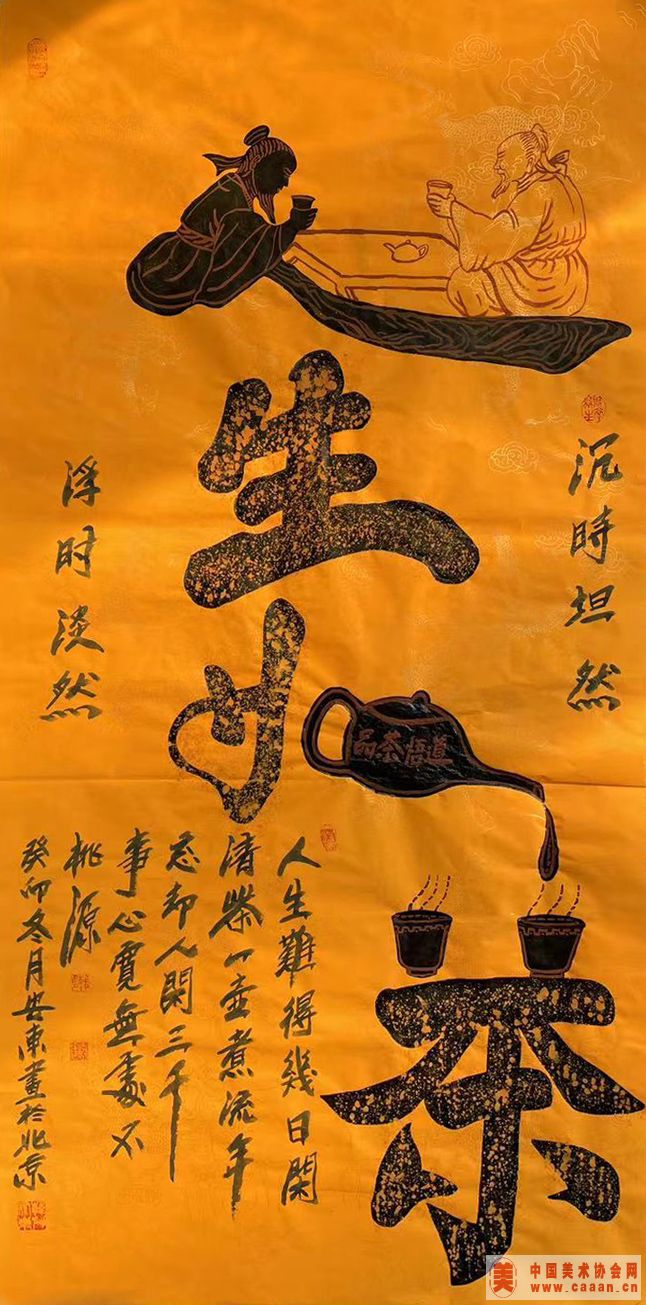 人生如茶
沉時坦然
浮时淡然
品茶悟道
人生難得幾日閑
清茶一壺煮流年
忘却人間三千
事心寬無處不
桃源
癸卯冬月安東畫於北京
中国美术协会网
www.caaan.cn